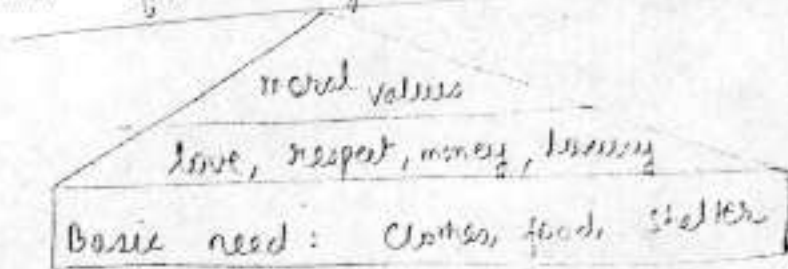 moral values
love, respect, money, luxury
Basic need: Clothes, food, shelter